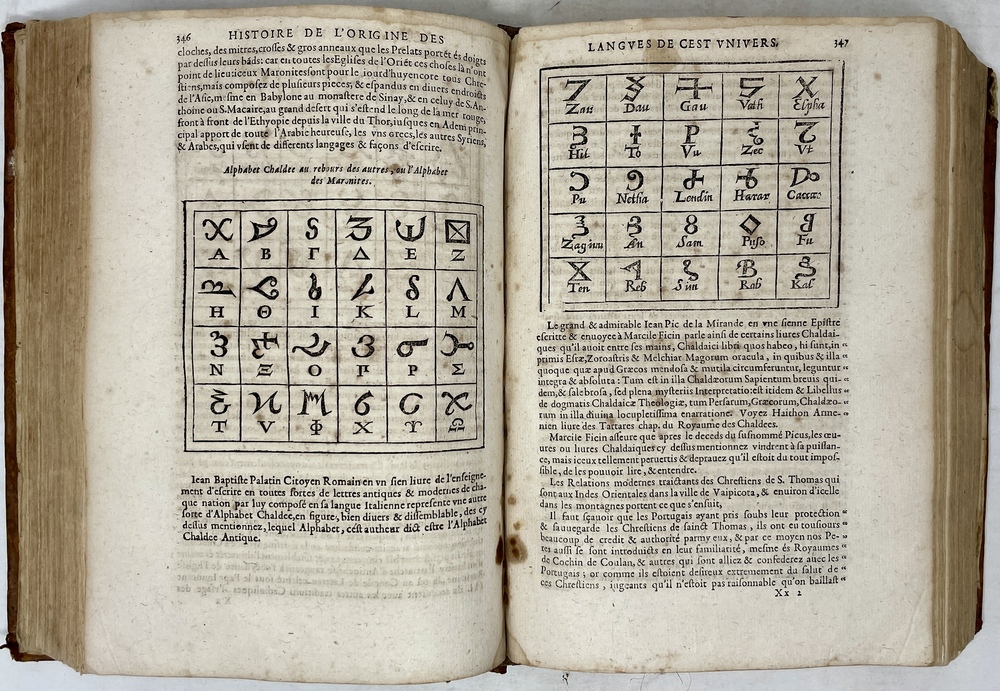 346 HISTOIRE DE L'ORIGINE DES
cloches, des mitres, crosses & gros anneaux que les Prelats portẽt és doigts
par dessus leurs bãds: car en toutes les Eglises de l'Oriẽt ces choses là n'ont
point de lieu: iceux Maronites sont pour le iourd'huy encore tous Chre-
stiens, mais composez de plusieurs pieces; & espandus en diuers endroicts
de l'Asie, mesme en Babylone au monastere de Sinay, & en celuy de S. An-
thoine ou S. Macaire, au grand desert qui s'estend le long de la mer rouge,
front à front de l'Ethyopie depuis la ville du Thor, iusques en Adem prin-
cipal apport de toute l'Arabie heureuse, les vns grecs, les autres Syriens,
& Arabes, qui vsent de differents langages & façons d'escrire.
Alphabet Chaldee au rebours des autres, ou l'Alphabet
des Maronites.
A B Γ Δ E Z
H Θ I K L M
N Ξ O Π P Σ
T V Φ X Ψ Ω
Iean Baptiste Palatin Citoyen Romain en vn sien liure de l'enseigne-
ment d'escrire en toutes sortes de lettres antiques & modernes de cha-
que nation par luy composé en sa langue Italienne represente vne autre
sorte d'Alphabet Chaldée, en figure, bien diuers & dissemblable, des cy
dessus mentionnez, lequel Alphabet, cest autheur dict estre l'Alphabet
Chaldee Antique.
LANGVES DE CEST VNIVERS. 347
Zau Dau Gau Vath Elpha
Hil To Vu Zec Vt
Pu Netsia Londin Harar Caccas
Zaginu Æn Sam Puso Fu
Ten Reb Sim Rab Kal
Le grand & admirable Iean Pic de la Mirande en vne sienne Epistre
escritte & enuoyee à Marcile Ficin parle ainsi de certains liures Chaldai-
ques qu'il auoit entre ses mains, Chaldaici libri quos habeo, hi sunt, in “
primis Esræ, Zoroastris & Melchiar Magorum oracula, in quibus & illa “
quoque quæ apud Græcos mendosa & mutila circumferuntur, leguntur “
integra & absoluta: Tum est in illa Chaldæorum Sapientum breuis qui- “
dem, & salebrosa, sed plena mysteriis Interpretatio: est itidem & Libellus “
de dogmatis Chaldaicæ Theologiæ, tum Persarum, Græcorum, Chaldæo- “
rum in illa diuina locupletissima enarratione. Voyez Haithon Arme-
nien liure des Tartares chap. du Royaume des Chaldees.
Marcile Ficin asseure que apres le deceds du susnommé Picus, les œu-
ures ou liures Chaldaiques cy dessus mentionnez vindrent à sa puissan-
ce, mais iceux tellement peruertis & deprauez qu'il estoit du tout impos-
sible, de les pouuoir lire, & entendre.
Les Relations modernes traictants des Chrestiens de S. Thomas qui
sont aux Indes Orientales dans la ville de Vaipicota, & enuiron d'icelle
dans les montagnes portent ce que s'ensuit,
Il faut sçauoir que les Portugais ayant pris soubs leur protection “
& sauuegarde les Chrestiens de sainct Thomas, ils ont eu tousiours “
beaucoup de credit & authorité parmy eux, & par ce moyen nos Pe- “
res aussi se sont introduicts en leur familiarité, mesme és Royaumes “
de Cochin de Coulan, & autres qui sont alliez & confederez auec les “
Portugais; or comme ils estoient desireux extremement du salut de “
ces Chrestiens, iugeants qu'il n'estoit pas raisonnable qu'on baillast “
Xx 2